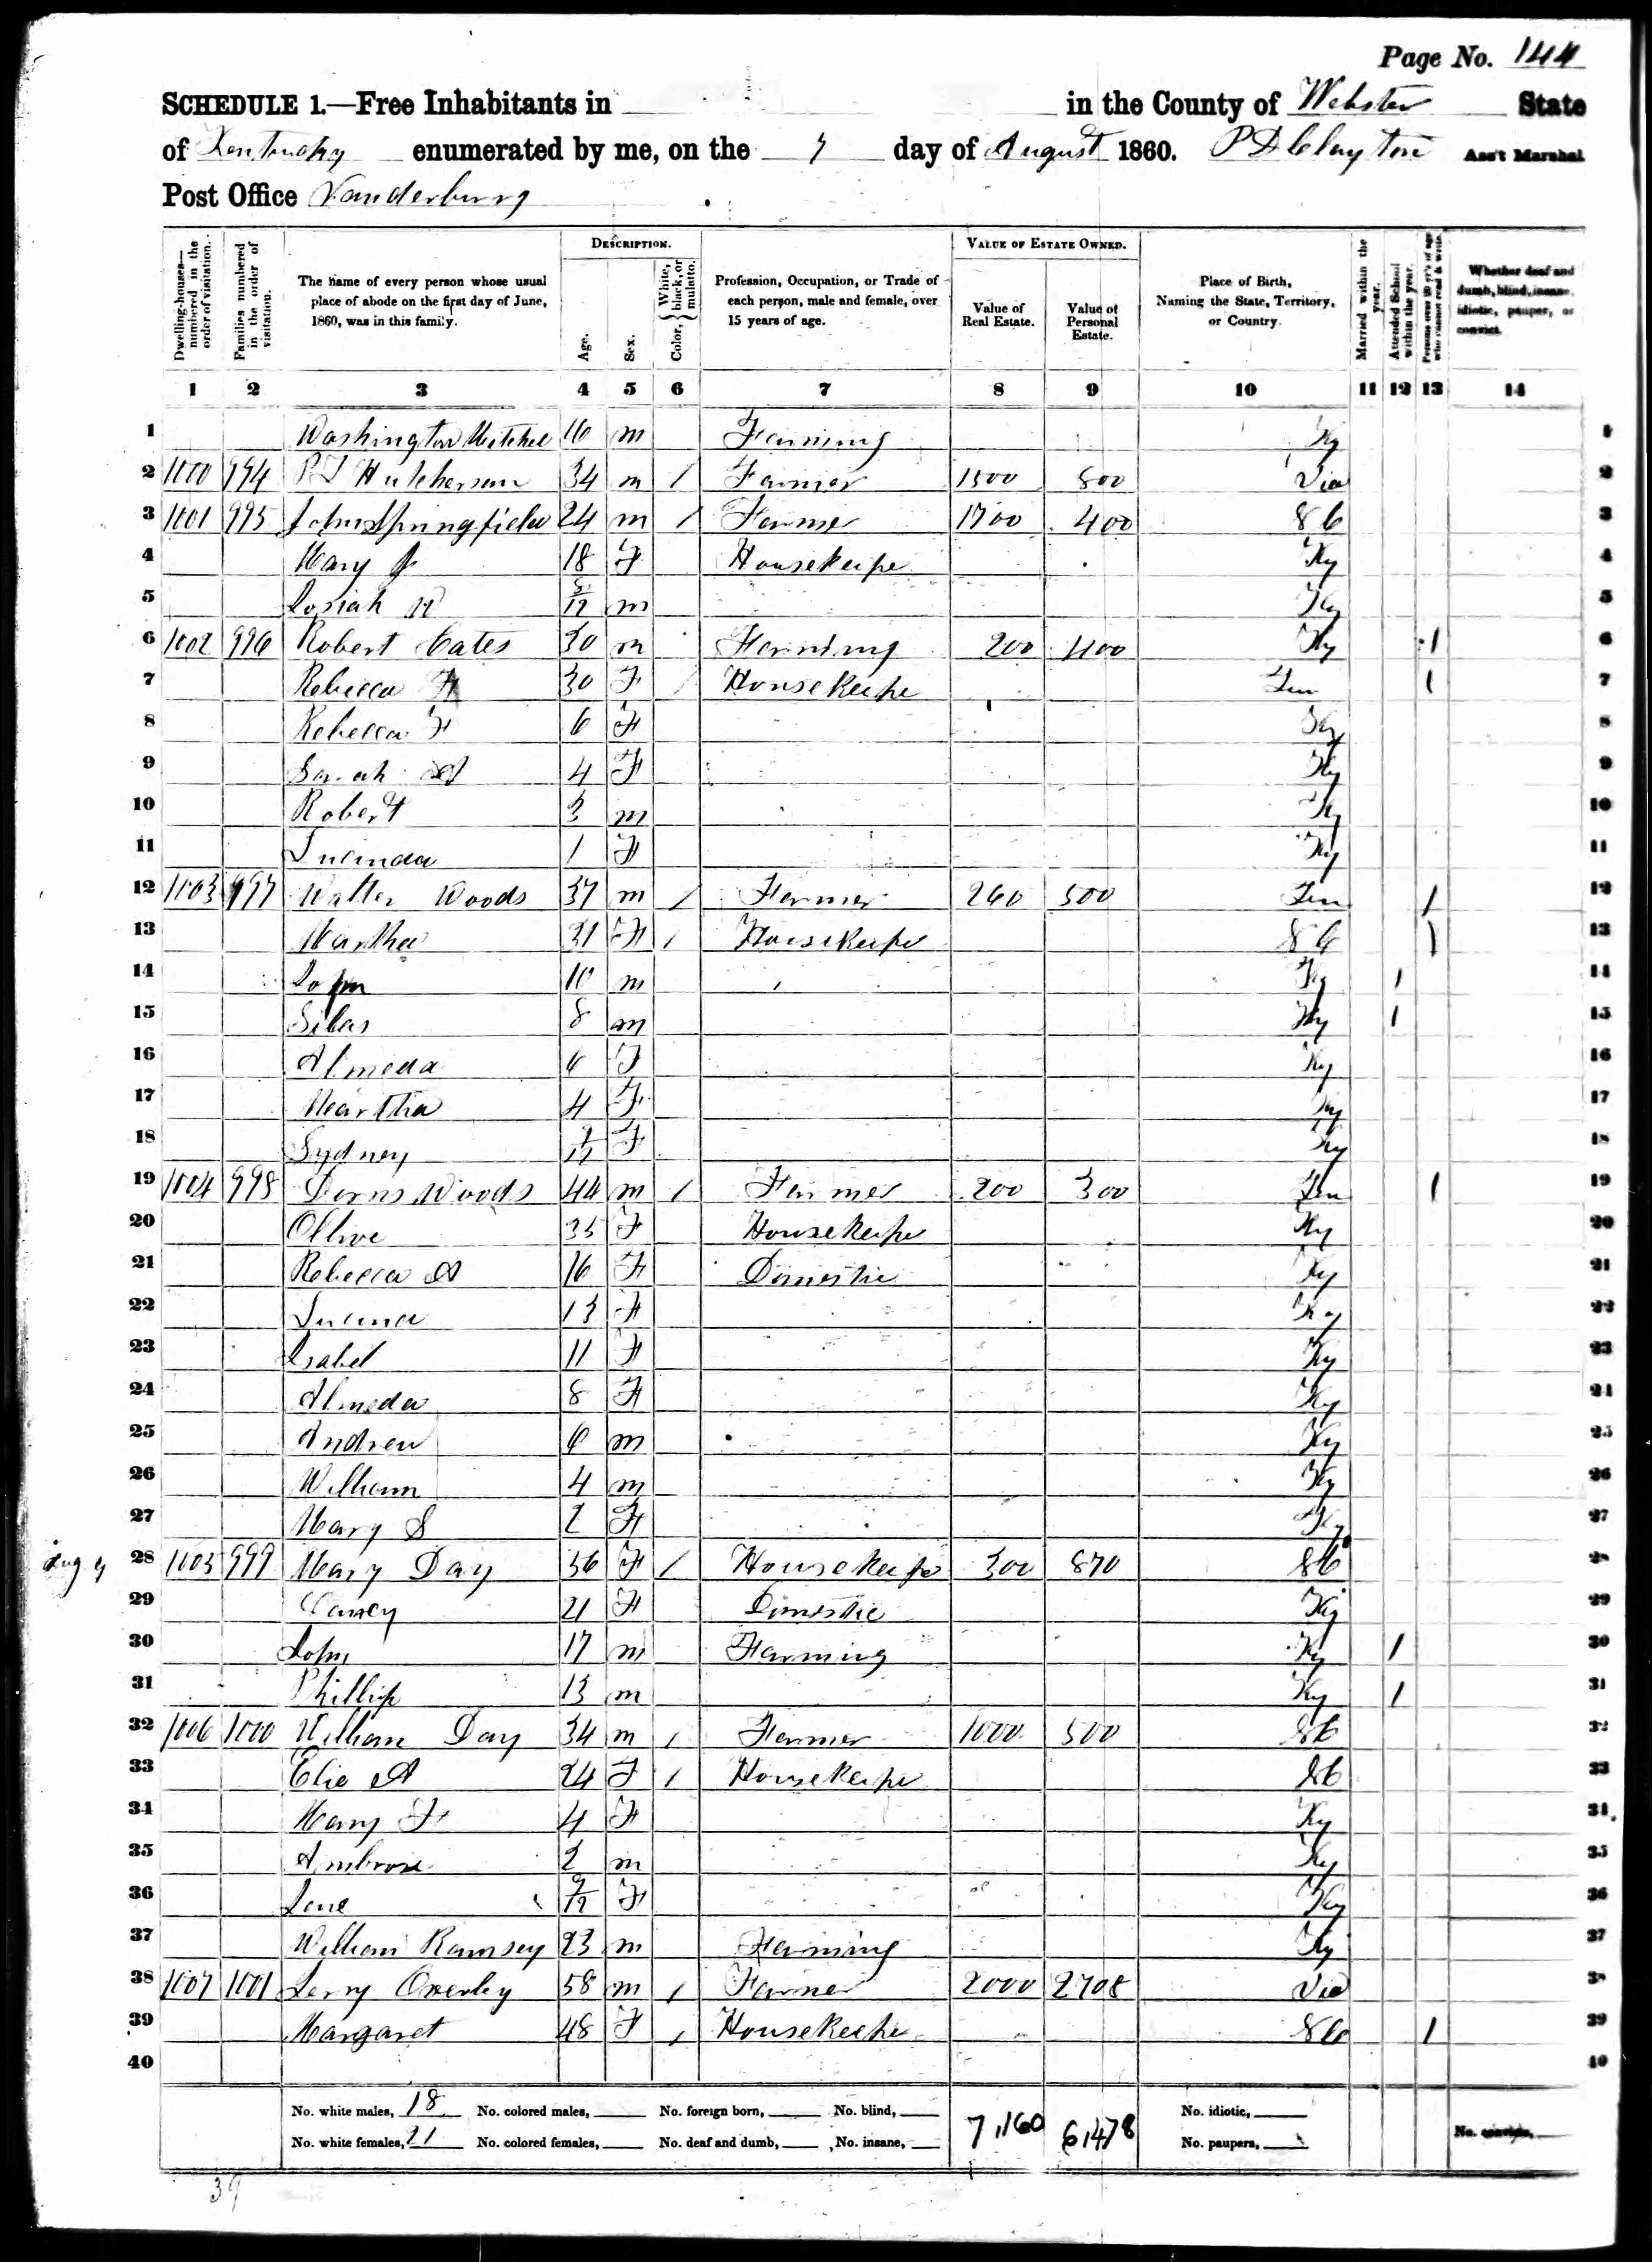 Page No. 144
SCHEDULE 1.—Free Inhabitants in in the County of Webster State
of Kentucky enumerated by me, on the 7 day of August 1860. P D Clayton Ass't Marshal
Post Office Vanderburg
Dwelling-houses—numbered in the order of visitation. Families numbered in the order of visitation. The name of every person whose usual place of abode on the first day of June, 1860, was in this family. DESCRIPTION. Age. Sex. Color, White, black, or mulatto. Profession, Occupation, or Trade of each person, male and female, over 15 years of age. VALUE OF ESTATE OWNED. Value of Real Estate. Value of Personal Estate. Place of Birth, Naming the State, Territory, or Country. Married within the year. Attended School within the year. Persons over 20 y'rs of age who cannot read & write. Whether deaf and dumb, blind, insane, idiotic, pauper, or convict.
1 2 3 4 5 6 7 8 9 10 11 12 13 14
1 Washington Mitchel 16 m Farming Ky 1
2 1000 994 Hutcherson 34 m / Farmer 1500 800 Via 2
3 1001 995 John Springfield 24 m / Farmer 1700 400 S C 3
4 Mary J 18 F Housekeepe Ky 4
5 Josiah 8/12 m Ky 5
6 1002 996 Robert Cates 30 m Farming 200 400 Ky 1 6
7 Rebecca 30 F / Housekeepe Ten 1 7
8 Rebecca F 6 F Ky 8
9 Sarah A 4 F Ky 9
10 Robert 3 m Ky 10
11 Lucinda 1 F Ky 11
12 1003 997 Walter Woods 37 m / Farmer 260 500 Ten / 12
13 Martha 31 F / Housekeepe S C 1 13
14 John 10 m Ky 1 14
15 Silas 8 m Ky 1 15
16 Almeda 6 F Ky 16
17 Martha 4 F Ky 17
18 Sydney /12 F Ky 18
19 1004 998 Woods 44 m / Farmer 200 300 Ten 1 19
20 Ollive 35 F Housekeepe Ky 20
21 Rebecca A 16 F Domestic Ky 21
22 13 F Ky 22
23 Isabel 11 F Ky 23
24 Almeda 8 F Ky 24
25 Andrew 6 m Ky 25
26 William 4 m Ky 26
27 Mary S 2 F Ky 27
Aug 28 1005 999 Mary Day 56 F / Housekeepe 300 870 S C 28
29 21 F Domestic Ky 29
30 John 17 m Farming Ky 1 30
31 Phillip 13 m Ky 1 31
32 1006 1000 William Day 34 m / Farmer 1000 500 S C 32
33 A 24 F / Housekeepe S C 33
34 Mary F 4 F Ky 34
35 Ambrose 2 m Ky 35
36 Jane 9/12 F Ky 36
37 William Ramsey 23 m Farming Ky 37
38 1007 1001 Jerry Overley 58 m / Farmer 2000 2708 Via 38
39 Margaret 48 F / Housekeepe S C 1 39
40 40
No. white males, 18 No. colored males, No. foreign born, No. blind, 7,160 6,478 No. idiotic,
No. white females, 21 No. colored females, No. deaf and dumb, No. insane, No. paupers, No. convicts,
39